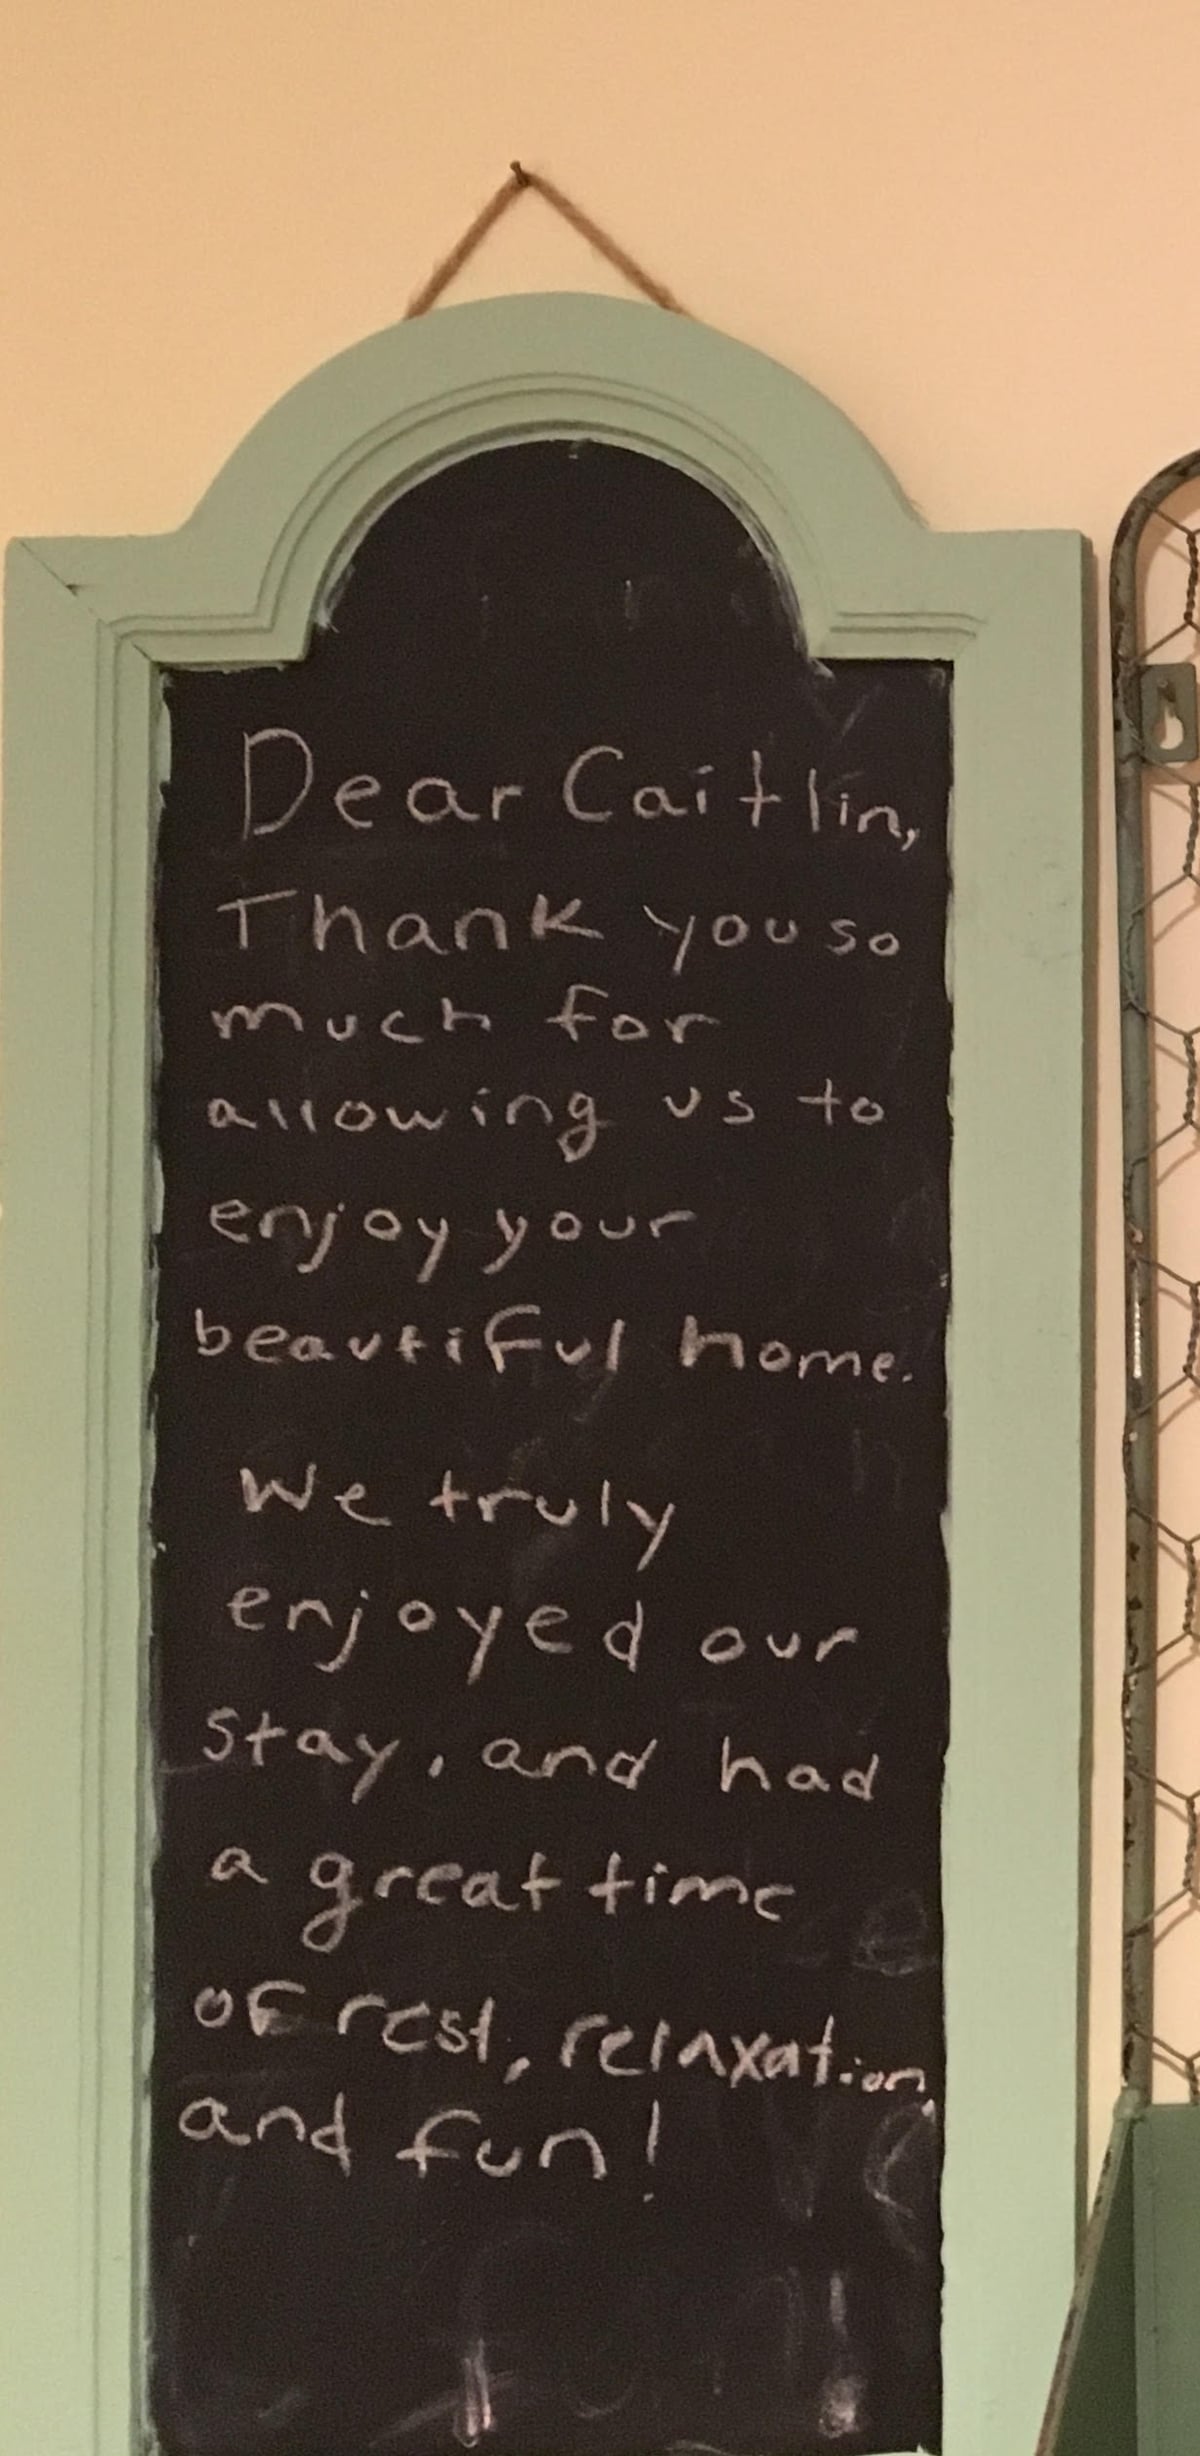 Dear Caitlin,
Thank you so
much for
allowing us to
enjoy your
beautiful home.
We truly
enjoyed our
stay, and had
a great time
of rest, relaxation,
and fun!